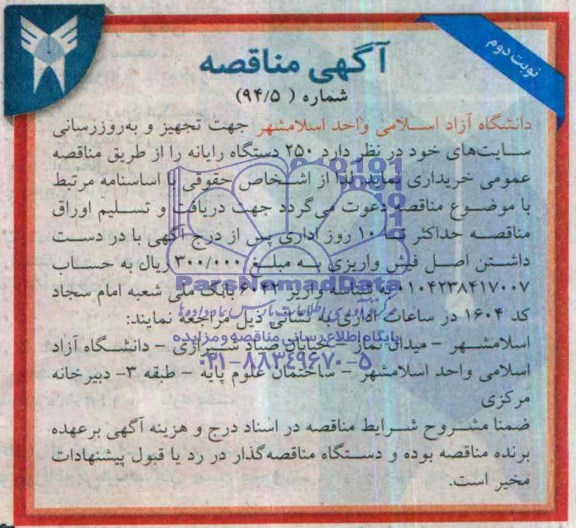 نوبت دوم
آگهی مناقصه
شماره ( ۹۴/۵)
دانشگاه آزاد اسلامی واحد اسلامشهر جهت تجهیز و به‌روزرسانی
سایت‌های خود در نظر دارد ۲۵۰ دستگاه رایانه را از طریق مناقصه
عمومی خریداری نماید لذا از اشخاص حقوقی با اساسنامه مرتبط
با موضوع مناقصه دعوت می‌گردد جهت دریافت و تسلیم اوراق
مناقصه حداکثر تا ۱۰ روز اداری پس از درج آگهی با در دست
داشتن اصل فیش واریزی به مبلغ ۳۰۰/۰۰۰ ریال به حساب
شناسه واریز ۶۰۴۲ بانک ملی شعبه امام سجاد
کد ۱۶۰۴ در ساعات اداری به نشانی ذیل مراجعه نمایند:
اسلامشهر – میدان نماز – خیابان صیاد شیرازی – دانشگاه آزاد
اسلامی واحد اسلامشهر – ساختمان علوم پایه – طبقه ۳- دبیرخانه
مرکزی
ضمنا مشروح شرایط مناقصه در اسناد درج و هزینه آگهی برعهده
برنده مناقصه بوده و دستگاه مناقصه‌گذار در رد یا قبول پیشنهادات
مخیر است.
ParsNamadData
پایگاه اطلاع رسانی مناقصه و مزایده
۰۲۱-۸۸۳۴۹۶۷۰-۵